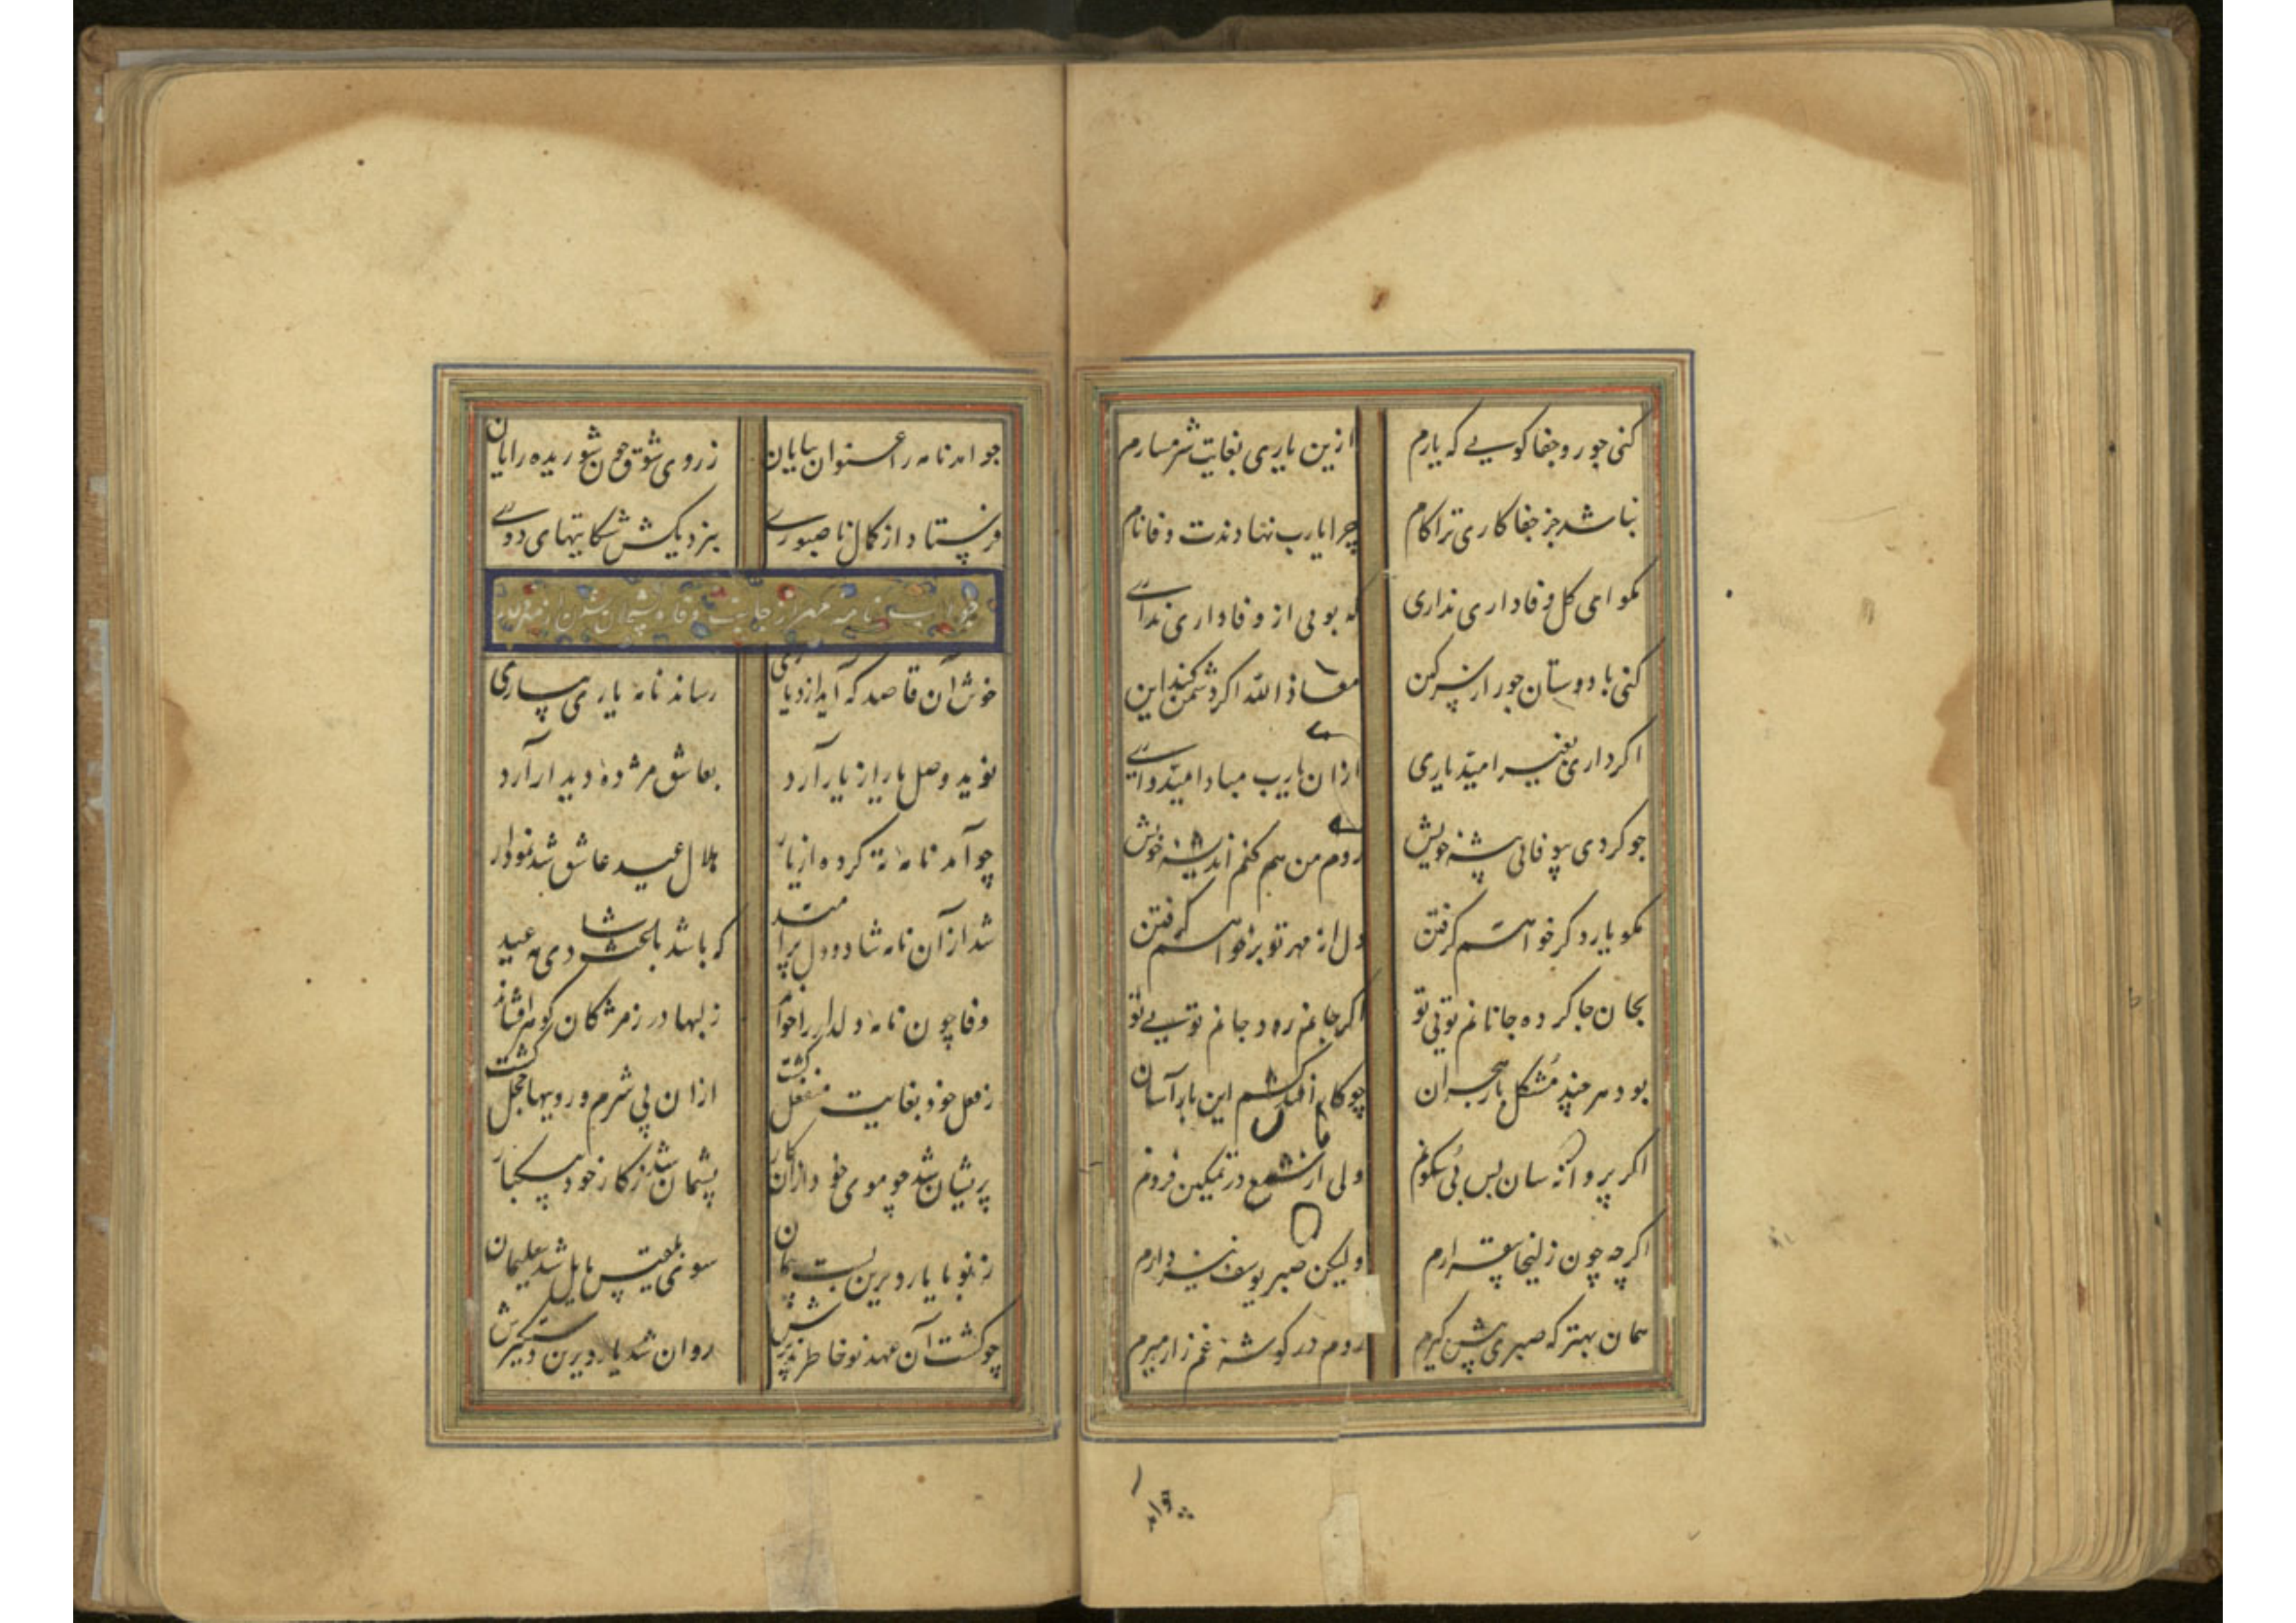 کنی جور و جفا کویی که یارم
ازین یاری بغایت شرمسارم
نباشد جز جفا کاری ترا کام
چرا یارب نهادندت وفا نام
مکو ای کل وفاداری نداری
که بویی از وفاداری نداری
کنی با دوستان جور از سر کین
معاذ الله اکر دشمن کند این
اکر داری بغیر امید یاری
ازان یارب مبادا امیدواری
جو کردی بیوفائی پیشه خویش
روم من هم کنم اندیشه خویش
مکو یار دکر خواهم کرفتن
دل از مهر تو بر خواهم کرفتن
بجان جا کرده جانانم تویی تو
اکر جانم رود جانم تویی تو
بود هر چند مشکل بار هجران
چو کار افتد کشم این بار آسان
اکر پروانه سان بس بی سکونم
ولی از شمع در تمکین فزونم
اکرچه چون زلیخا بیقرارم
ولیکن صبر یوسف نیز دارم
همان بهتر که صبری پیش کیرم
روم در کوشه غم زار میرم
جوامد
جو امد نامه را عنوان بپایان
ز روی شوق چون شوریده رایان
فرستاد از کمال ناصبوری
بنزدیکش شکایتهای دوری
جواب نامه مهر از جانب وفا و پشیمان شدن از
خوش آن قاصد که آید از دیاری
رساند نامه یاری بیاری
نوید وصل یار از یار آرد
بعاشق مژده دیدار آرد
چو آمد نامه ته کرده از یار
هلال عید عاشق شد نمودار
شد از آن نامه شاد و دل پر امید
که باشد باعث شادی مه عید
وفا چون نامه دلدار را خواند
ز لبها در ز مژکان کوهر افشاند
ز فعل خود بغایت منفعل کشت
ازان بی شرم و روییها خجل کشت
پریشان شد چو موی خود ازان کار
پشیمان شد ز کار خود بیکبار
ز نو با یار دیرین بست پیمان
سوی بلقیس مایل شد سلیمان
چو کشت آن عهد نو خاطر پذیرش
روان شد یار دیرین دستکیرش